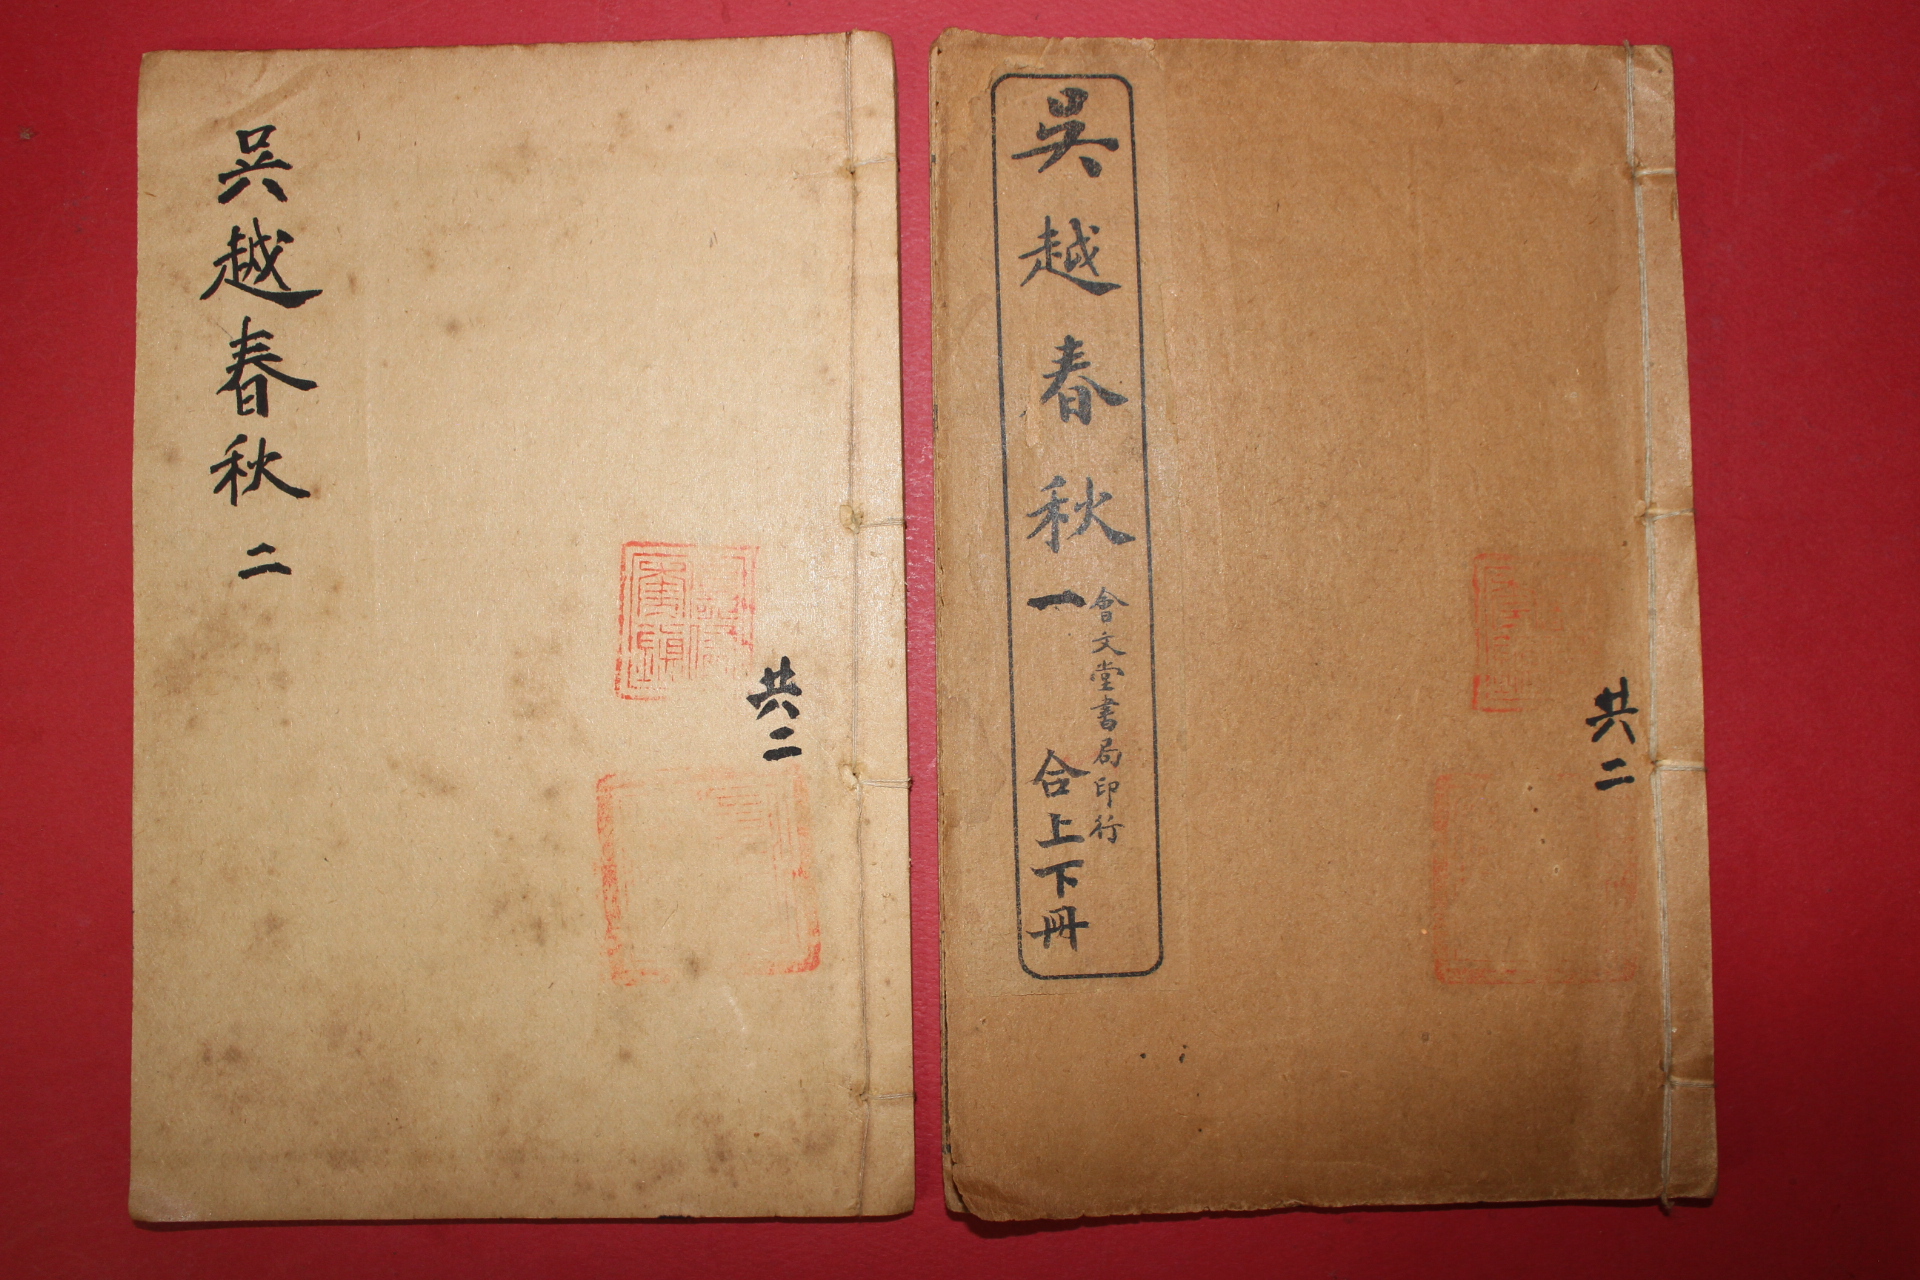 吳越春秋一
會文堂書局印行
合上下冊
共二
吳越春秋二
共二